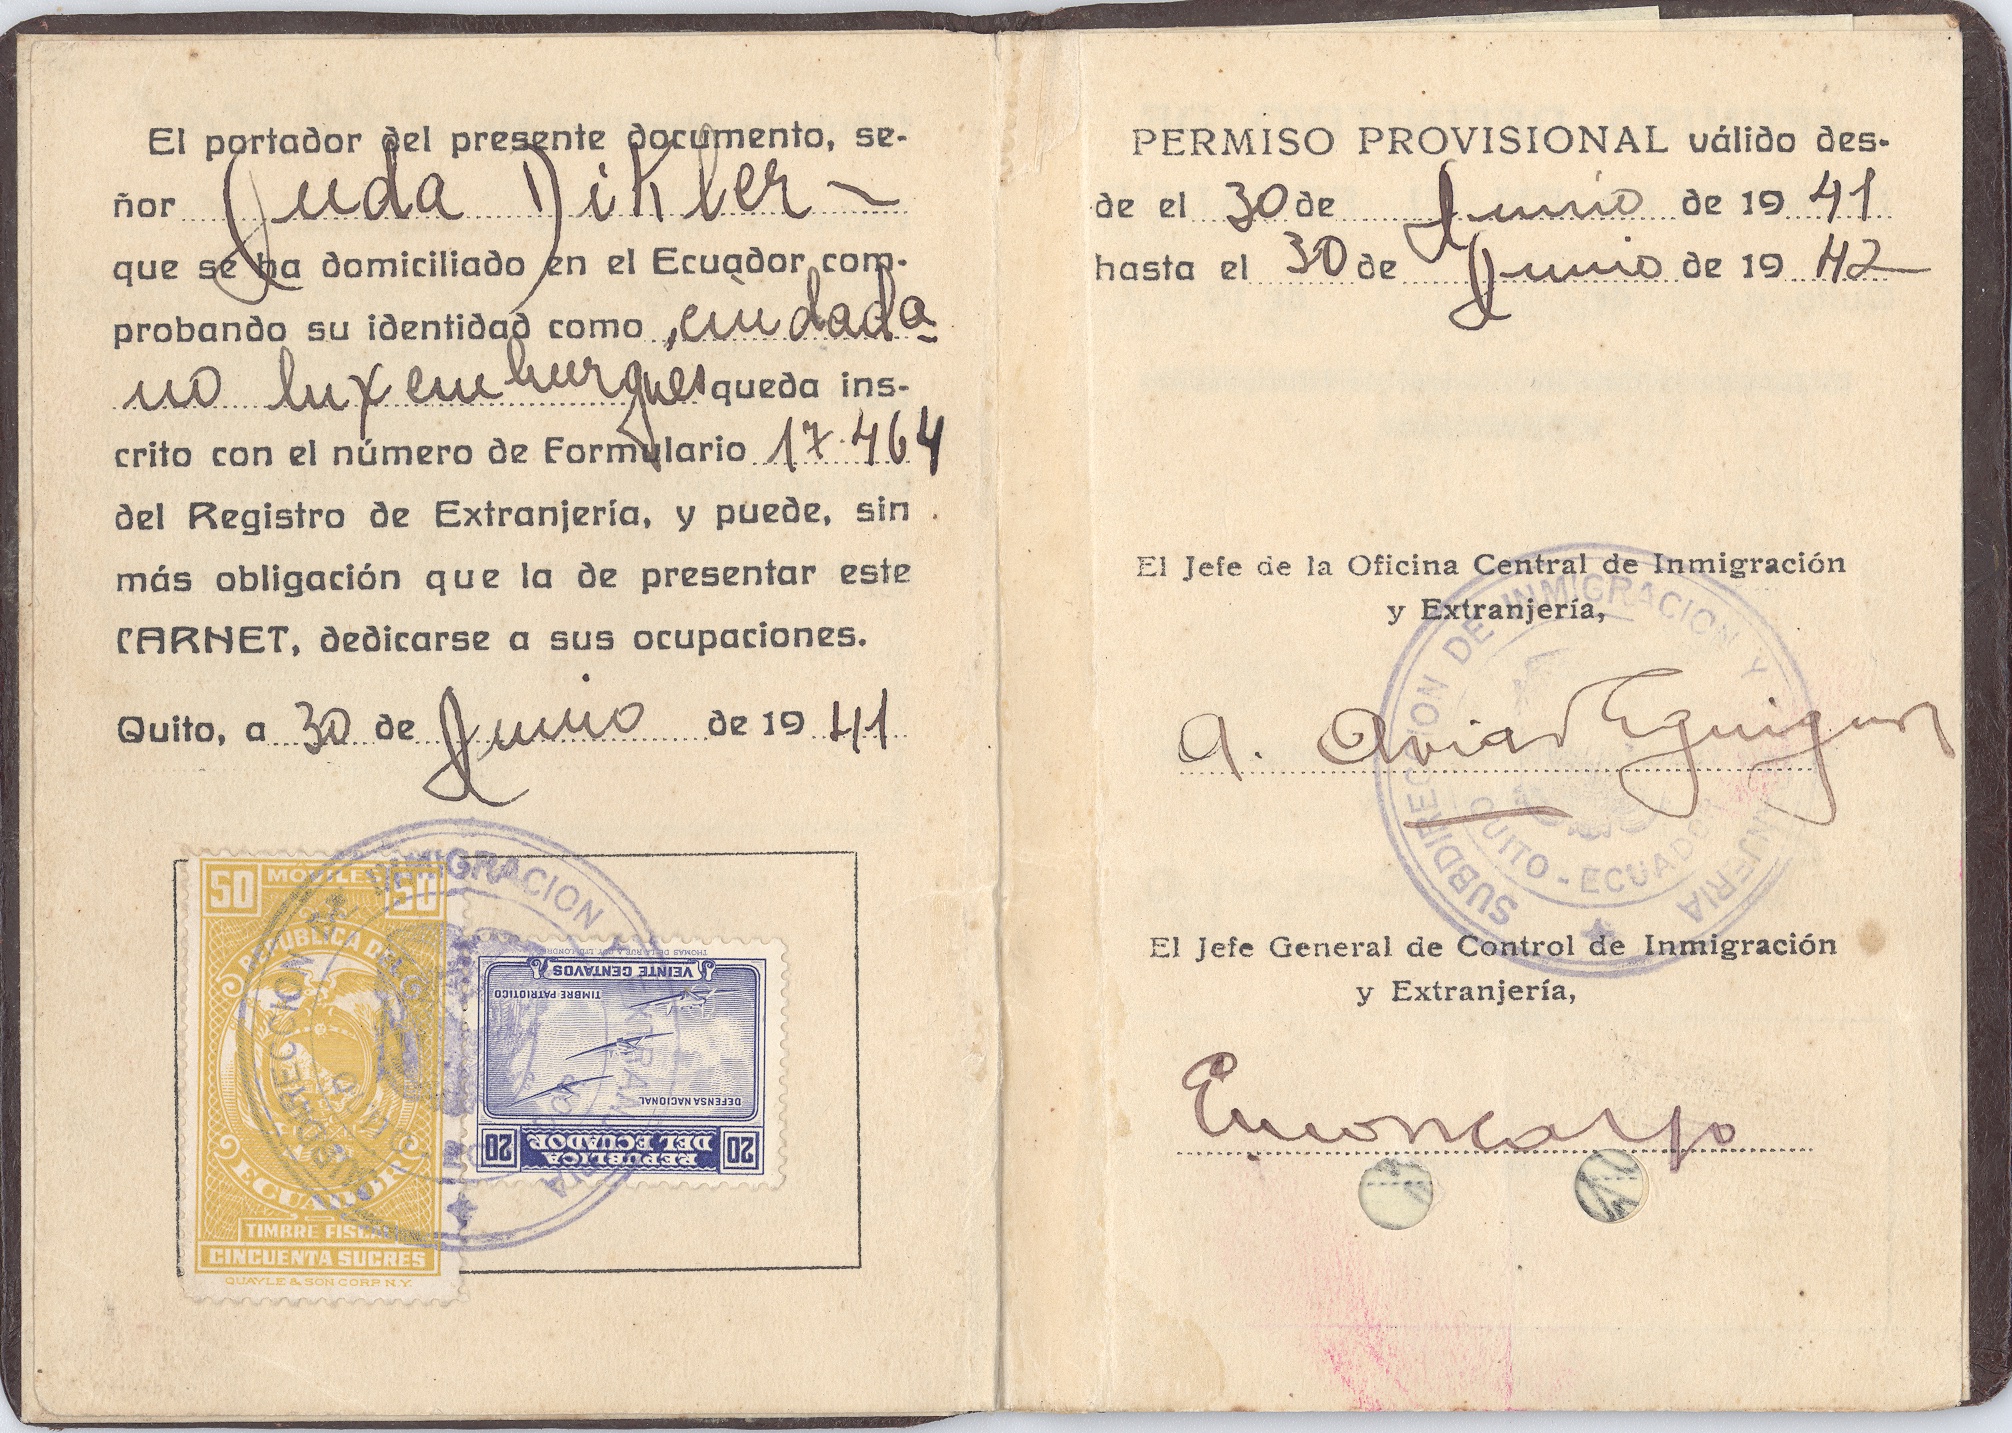 El portador del presente documento, se-
ñor Juda Dikler
que se ha domiciliado en el Ecuador com-
probando su identidad como ciudada-
no luxemburgues queda ins-
crito con el número de Formulario 17.464
del Registro de Extranjería, y puede, sin
más obligación que la de presentar este
CARNET, dedicarse a sus ocupaciones.
Quito, a 30 de Junio de 1941
50 MOVILES 50
REPUBLICA DEL
ECUADOR
TIMBRE FISCAL
CINCUENTA SUCRES
QUAYLE & SON CORP N.Y.
REPUBLICA
20 DEL ECUADOR 20
DEFENSA NACIONAL
TIMBRE PATRIOTICO
VEINTE CENTAVOS
THOMAS DE LA RUE & CY. LTD. LONDRES
SUBDIRECCION DE INMIGRACION Y EXTRANJERIA
QUITO - ECUADOR
PERMISO PROVISIONAL válido des-
de el 30 de Junio de 1941
hasta el 30 de Junio de 1942
El Jefe de la Oficina Central de Inmigración
y Extranjería,
SUBDIRECCION DE INMIGRACION Y EXTRANJERIA
QUITO - ECUADOR
A.
El Jefe General de Control de Inmigración
y Extranjería,